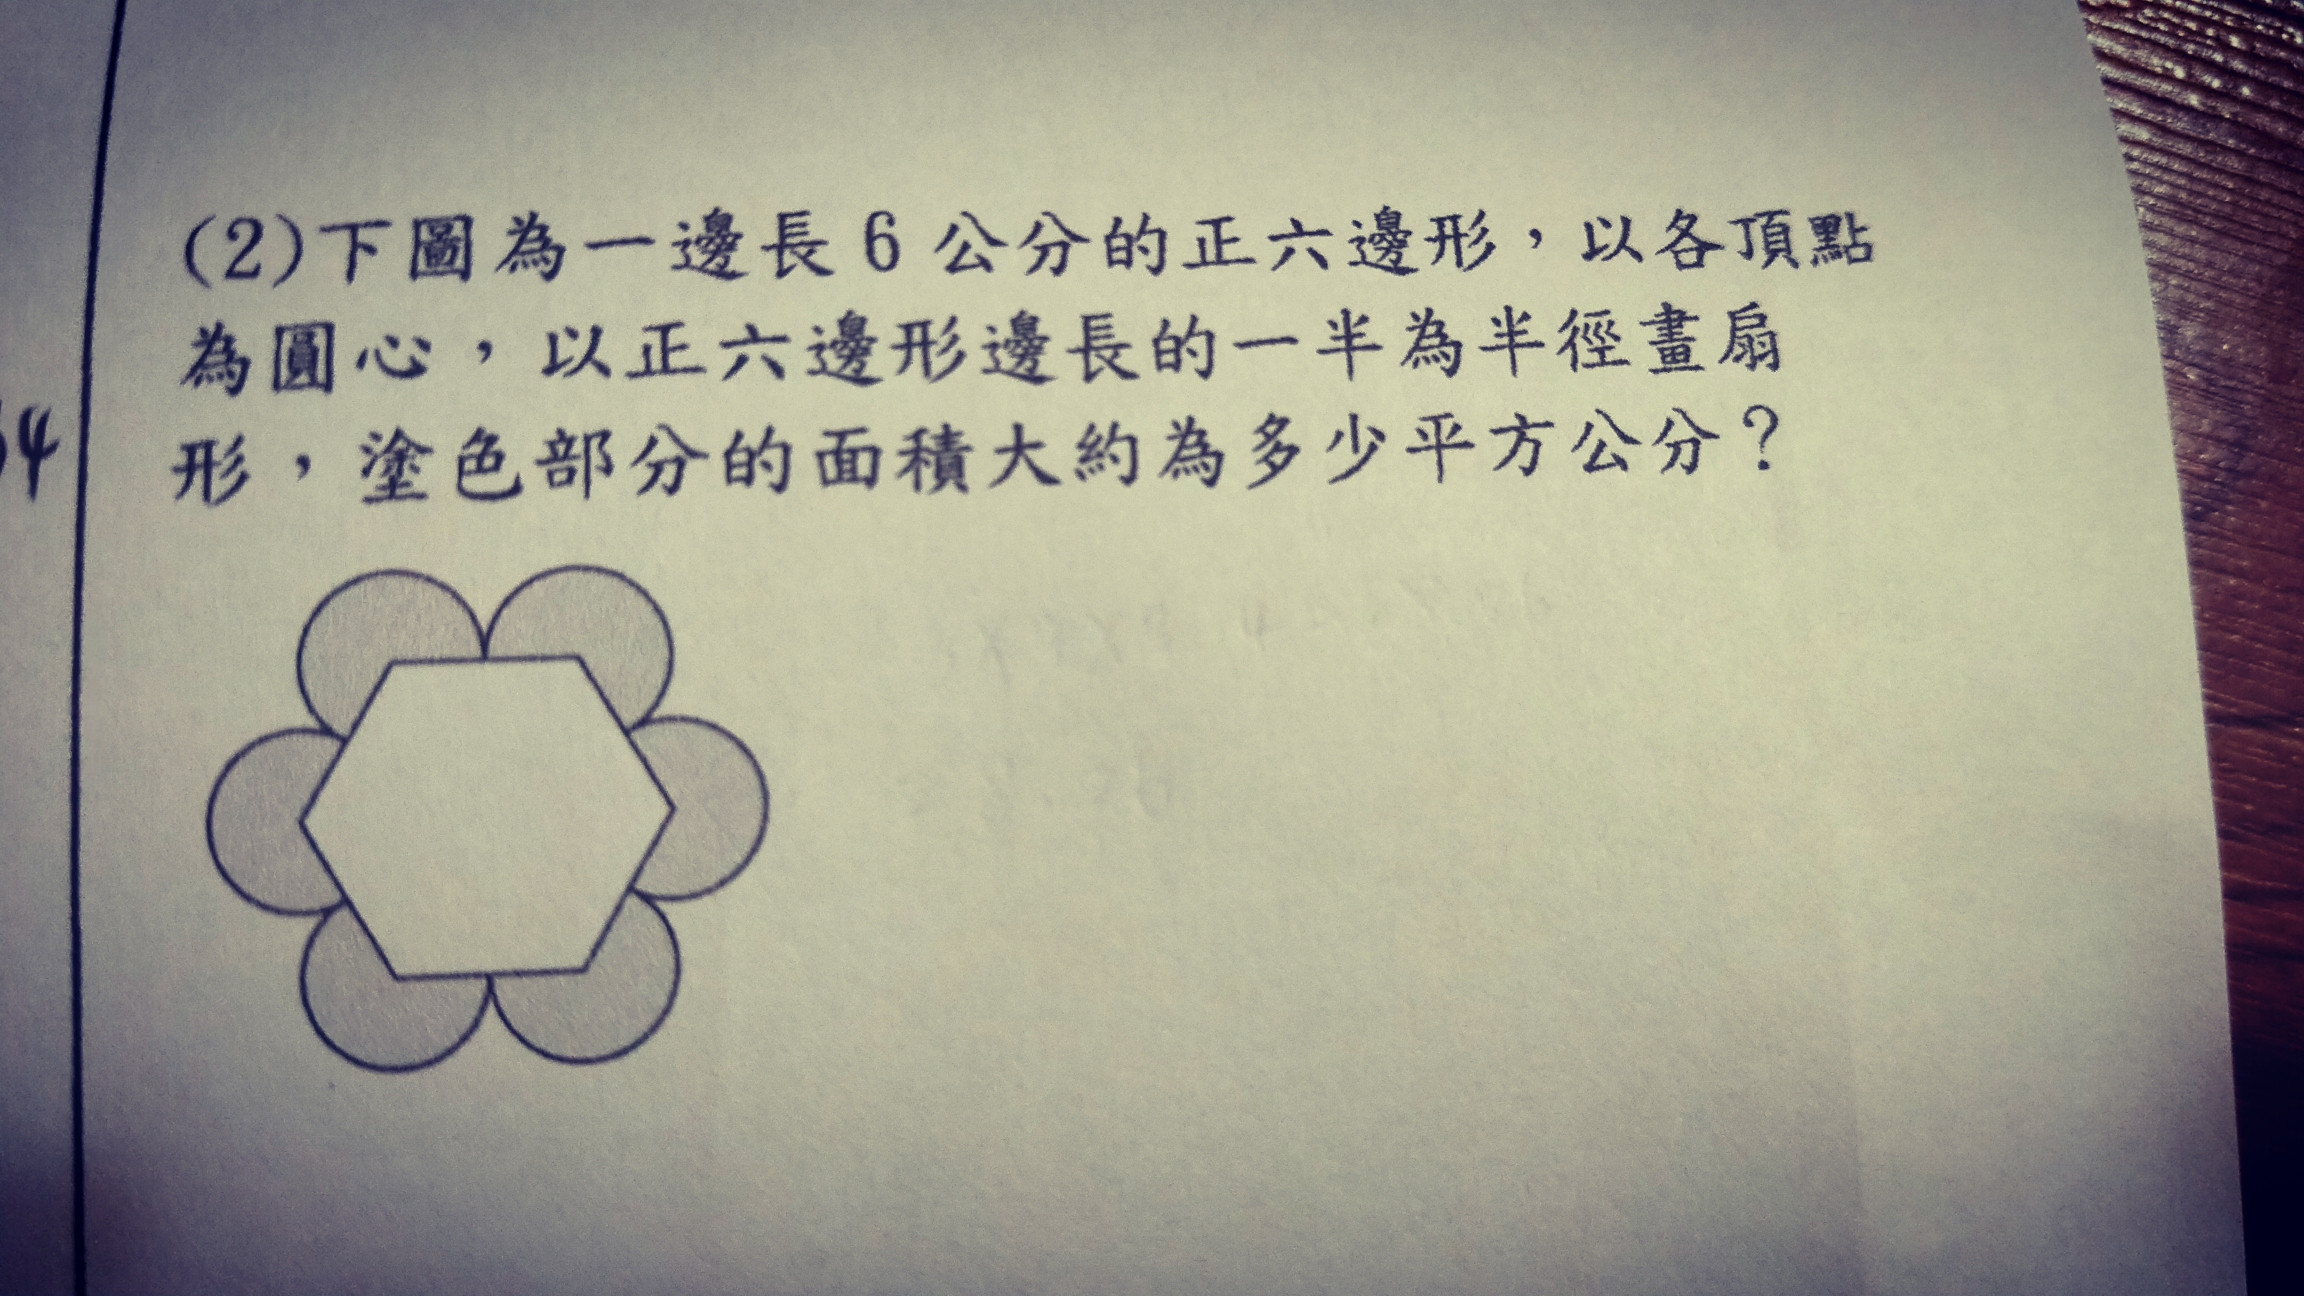 (2)下圖為一邊長6公分的正六邊形，以各頂點
為圓心，以正六邊形邊長的一半為半徑畫扇
形，塗色部分的面積大約為多少平方公分？
4